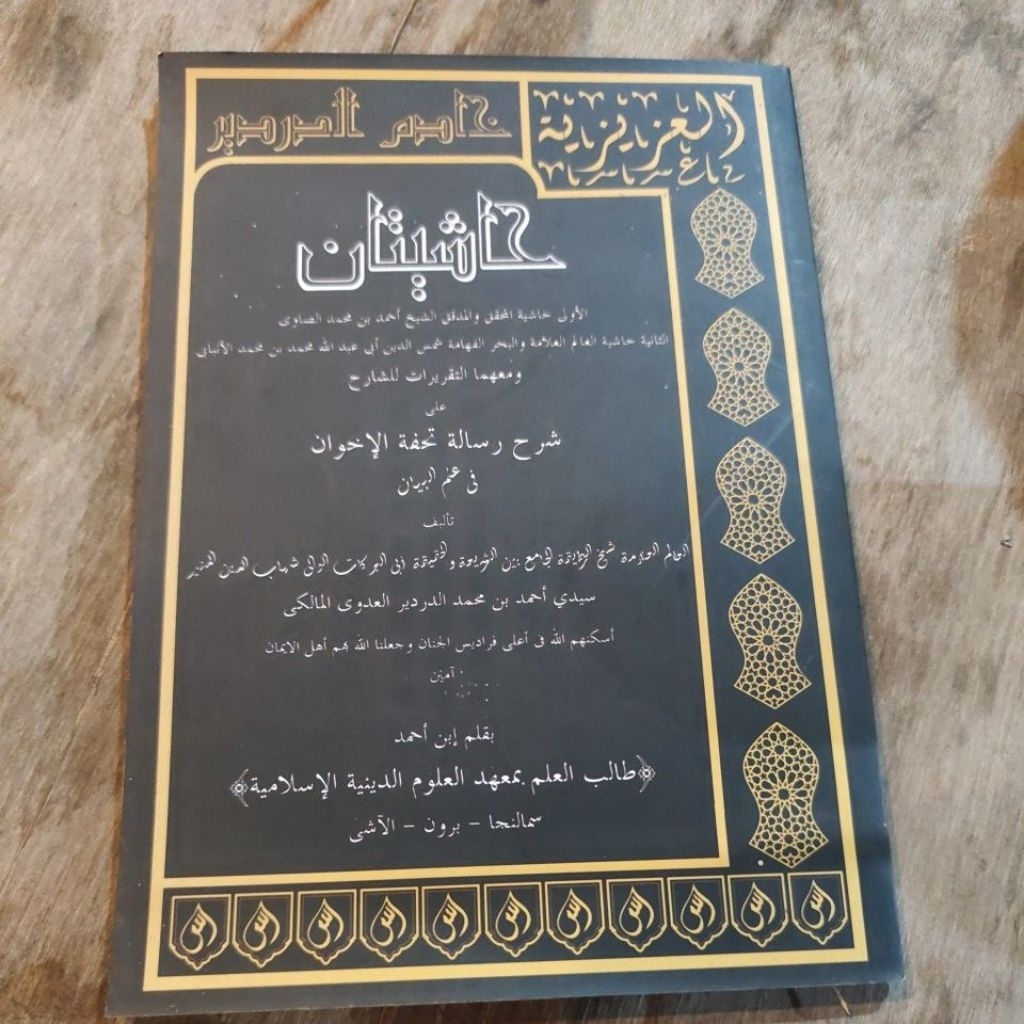 العزيزية
خادم الدردير
حاشيتان
الأولى حاشية المحقق والمدقق الشيخ أحمد بن محمد الصاوى
الثانية حاشية العالم العلامة والبحر الفهامة شمس الدين أبي عبد الله محمد بن محمد الأنبابي
ومعهما التقريرات للشارح
على
شرح رسالة تحفة الإخوان
فى علم البيان
تأليف
العالم العلامة شيخ الطريقة الجامع بين الشريعة والحقيقة أبى البركات الولى شهاب الدين
سيدي أحمد بن محمد الدردير العدوى المالكى
أسكنهم الله فى أعلى فراديس الجنان وجعلنا الله بهم أهل الايمان
آمين
بقلم إبن أحمد
طالب العلم بمعهد العلوم الدينية الإسلامية
سمالنجا - برون - الآشى